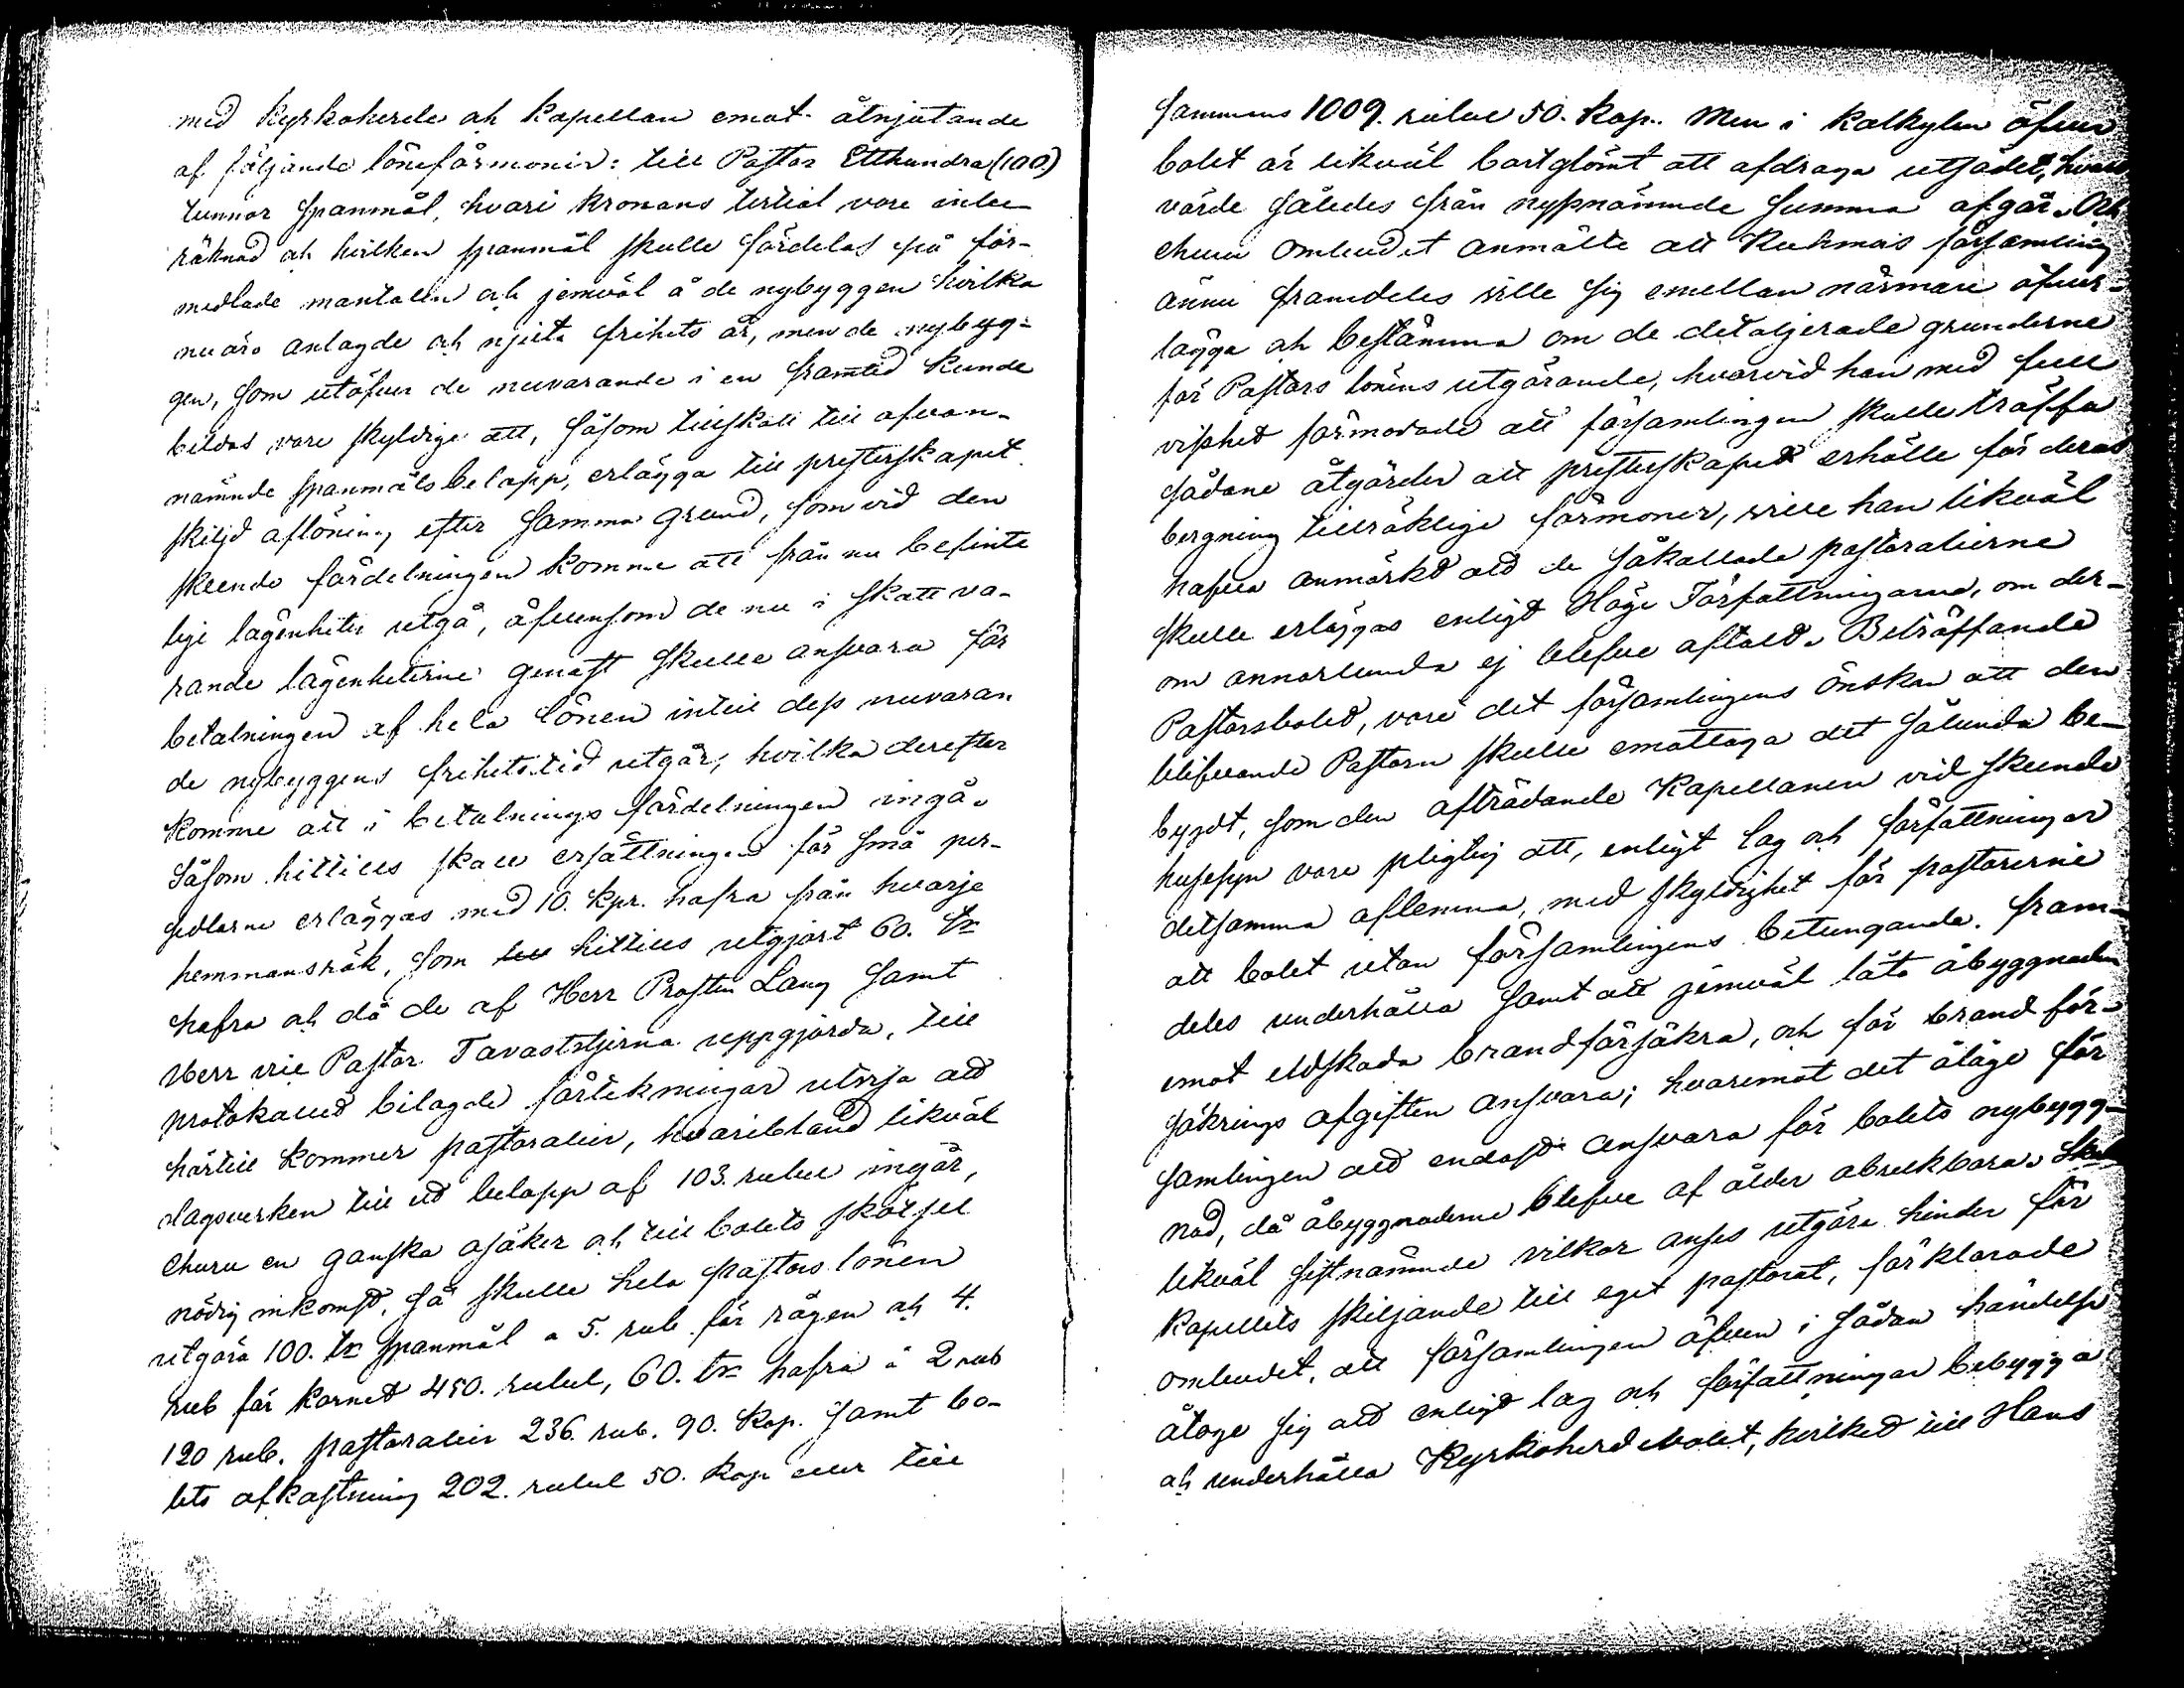 med Kyrkoherde och Kapellan emot åtnjutande
af följande löneförmoner: till Pastor Etthundra (100.)
tunnor spanmål, hvari kronans tertial vore inbe-
räknad och hvilken spanmål skulle fördelas på för-
medlade mantalen och jemväl å de nybyggen hvilka
nu äro anlagde och njuta frihets år, men de nybyg-
gen, som utöfver de nuvarande i en framtid kunde
bildas vore skyldige att, såsom tillskott till ofvan-
nämnde spanmåls belopp, erlägga till presterskapet
skiljd aflöning efter samma grund, som vid den
skeende fördelningen komme att från nu befinte-
lige lägenheter utgå, äfvensom de nu i skatt va-
rande lägenheterne genast skulle ansvara för
betalningen af hela lönen intill dess nuvaran
de nybyggens frihetstid utgår, hvilka derefter
komme att i betalnings fördelningen ingå.
Såsom hittills skall ersättningen för små per-
sedlarne erläggas med 10. kpr. hafra från hvarje
hemmansrök, som hittills utgjort 60. tr
hafra och då de af Herr Prosten Lang samt
Herr vice Pastor Tavaststjerna uppgjorda, till
protokollet bilagde förtekningar utvisa att
härtill kommer pastoralier, hvaribland likväl
dagsverken till ett belopp af 103. rubel ingår,
ehuru en ganska osäker och till bolets skötsel
nödig inkomst, så skulle hela pastors lönen
utgöra 100. tr spanmål a 5. rub för rågen och 4.
rub för kornet 450. rubel, 60. tr hafra á 2 rub
120 rub. pastoralier 236. rub. 90. kop. samt bo-
lets afkastning 202. rubel 50. kop eller till
sammans 1009. rubel 50. kop. Men i kalkylen öfver
bolet är likväl bortglömt att afdraga utsädet, hvars
värde således från nyssnämnde summa afgår. Och
ehuru ombudet anmälte att Kuhmois församling
ännu framdeles ville sig emellan närmare öfver-
lägga och bestämma om de detaljerade grunderne
för Pastors lönens utgörande, hvarvid han med full
visshet förmodade att församlingen skulle träffa
sådane åtgärder att presterskapet erhölle för deras
bergning tillräklige förmoner, ville han likväl
hafva anmärkt att de såkallade pastoralierne
skulle erläggas enligt Höge Författningarne, om der-
om annorlunda ej blefve aftalt. Beträffande
Pastorsbolet, vore det församlingens önskan att den
blifvande Pastorn skulle emottaga det sålunda be-
bygdt, som den afträdande Kapellanen vid skeende
husesyn vore pligtig att, enligt lag och författningar
detsamma aflemna, med skyldighet för pastorerne
att bolet utan församlingens betungande. fram-
deles underhålla samt att jemväl låta åbyggnaden
emot eldskada brandförsäkra, och för brand för-
säkrings afgiften ansvara; hvaremot det ålåge för
samlingen att endast ansvara för bolets nybygg-
nad, då åbyggnaderne blefve af ålder obrukbara. Skul
likväl sistnämnde vilkor anses utgöra hinder för
Kapellets skiljande till eget pastorat, förklarade
ombudet, att församlingen äfven i sådan händelse
åtoge sig att enligt lag och författningar bebygga
och underhålla Kyrkoherdebolet, hvilket till Hans